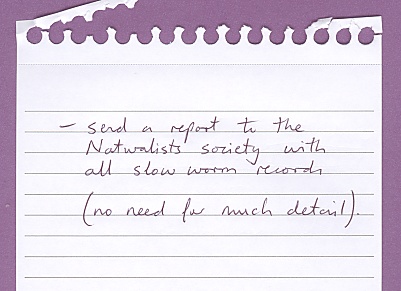 - send a report to the
Naturalists society with
all slow worm records
(no need for much detail).